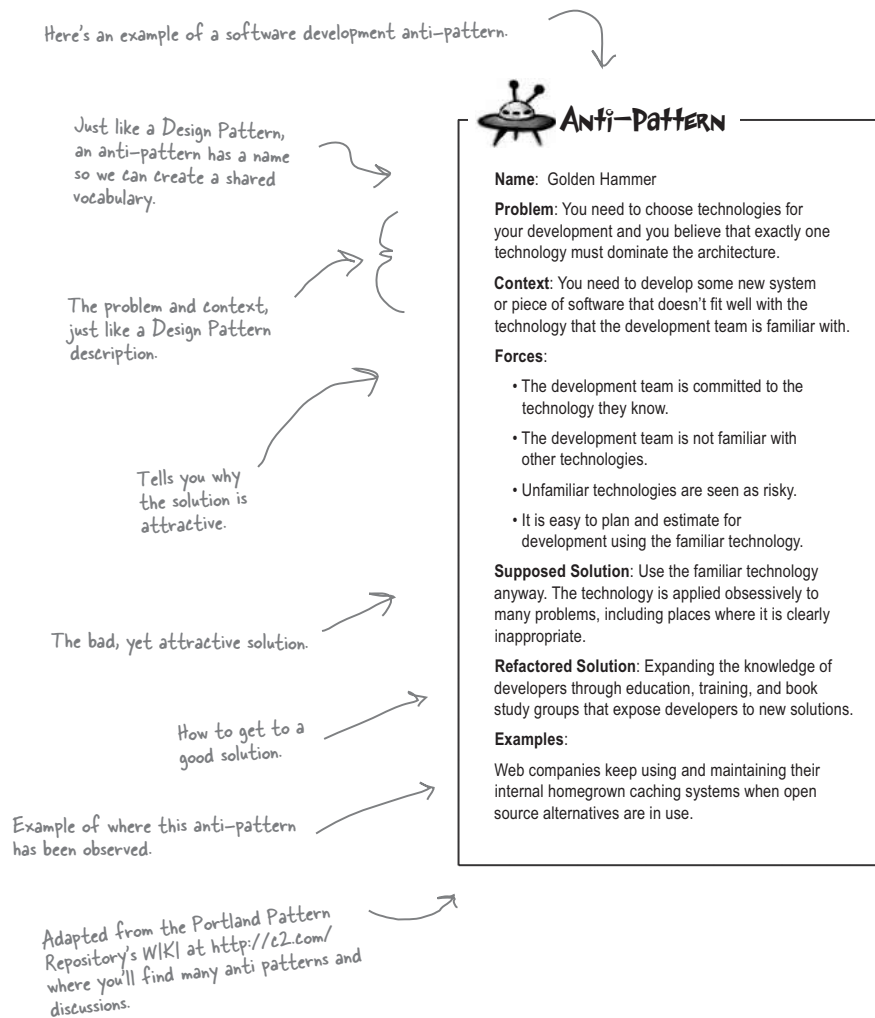 Here's an example of a software development anti-pattern.
Just like a Design Pattern,
an anti-pattern has a name
so we can create a shared
vocabulary.
The problem and context,
just like a Design Pattern
description.
Tells you why
the solution is
attractive.
The bad, yet attractive solution.
How to get to a
good solution.
Example of where this anti-pattern
has been observed.
Adapted from the Portland Pattern
Repository's WIKI at http://c2.com/
where you'll find many anti patterns and
discussions.
Anti-Pattern
Name: Golden Hammer
Problem: You need to choose technologies for
your development and you believe that exactly one
technology must dominate the architecture.
Context: You need to develop some new system
or piece of software that doesn't fit well with the
technology that the development team is familiar with.
Forces:
• The development team is committed to the
technology they know.
• The development team is not familiar with
other technologies.
• Unfamiliar technologies are seen as risky.
• It is easy to plan and estimate for
development using the familiar technology.
Supposed Solution: Use the familiar technology
anyway. The technology is applied obsessively to
many problems, including places where it is clearly
inappropriate.
Refactored Solution: Expanding the knowledge of
developers through education, training, and book
study groups that expose developers to new solutions.
Examples:
Web companies keep using and maintaining their
internal homegrown caching systems when open
source alternatives are in use.